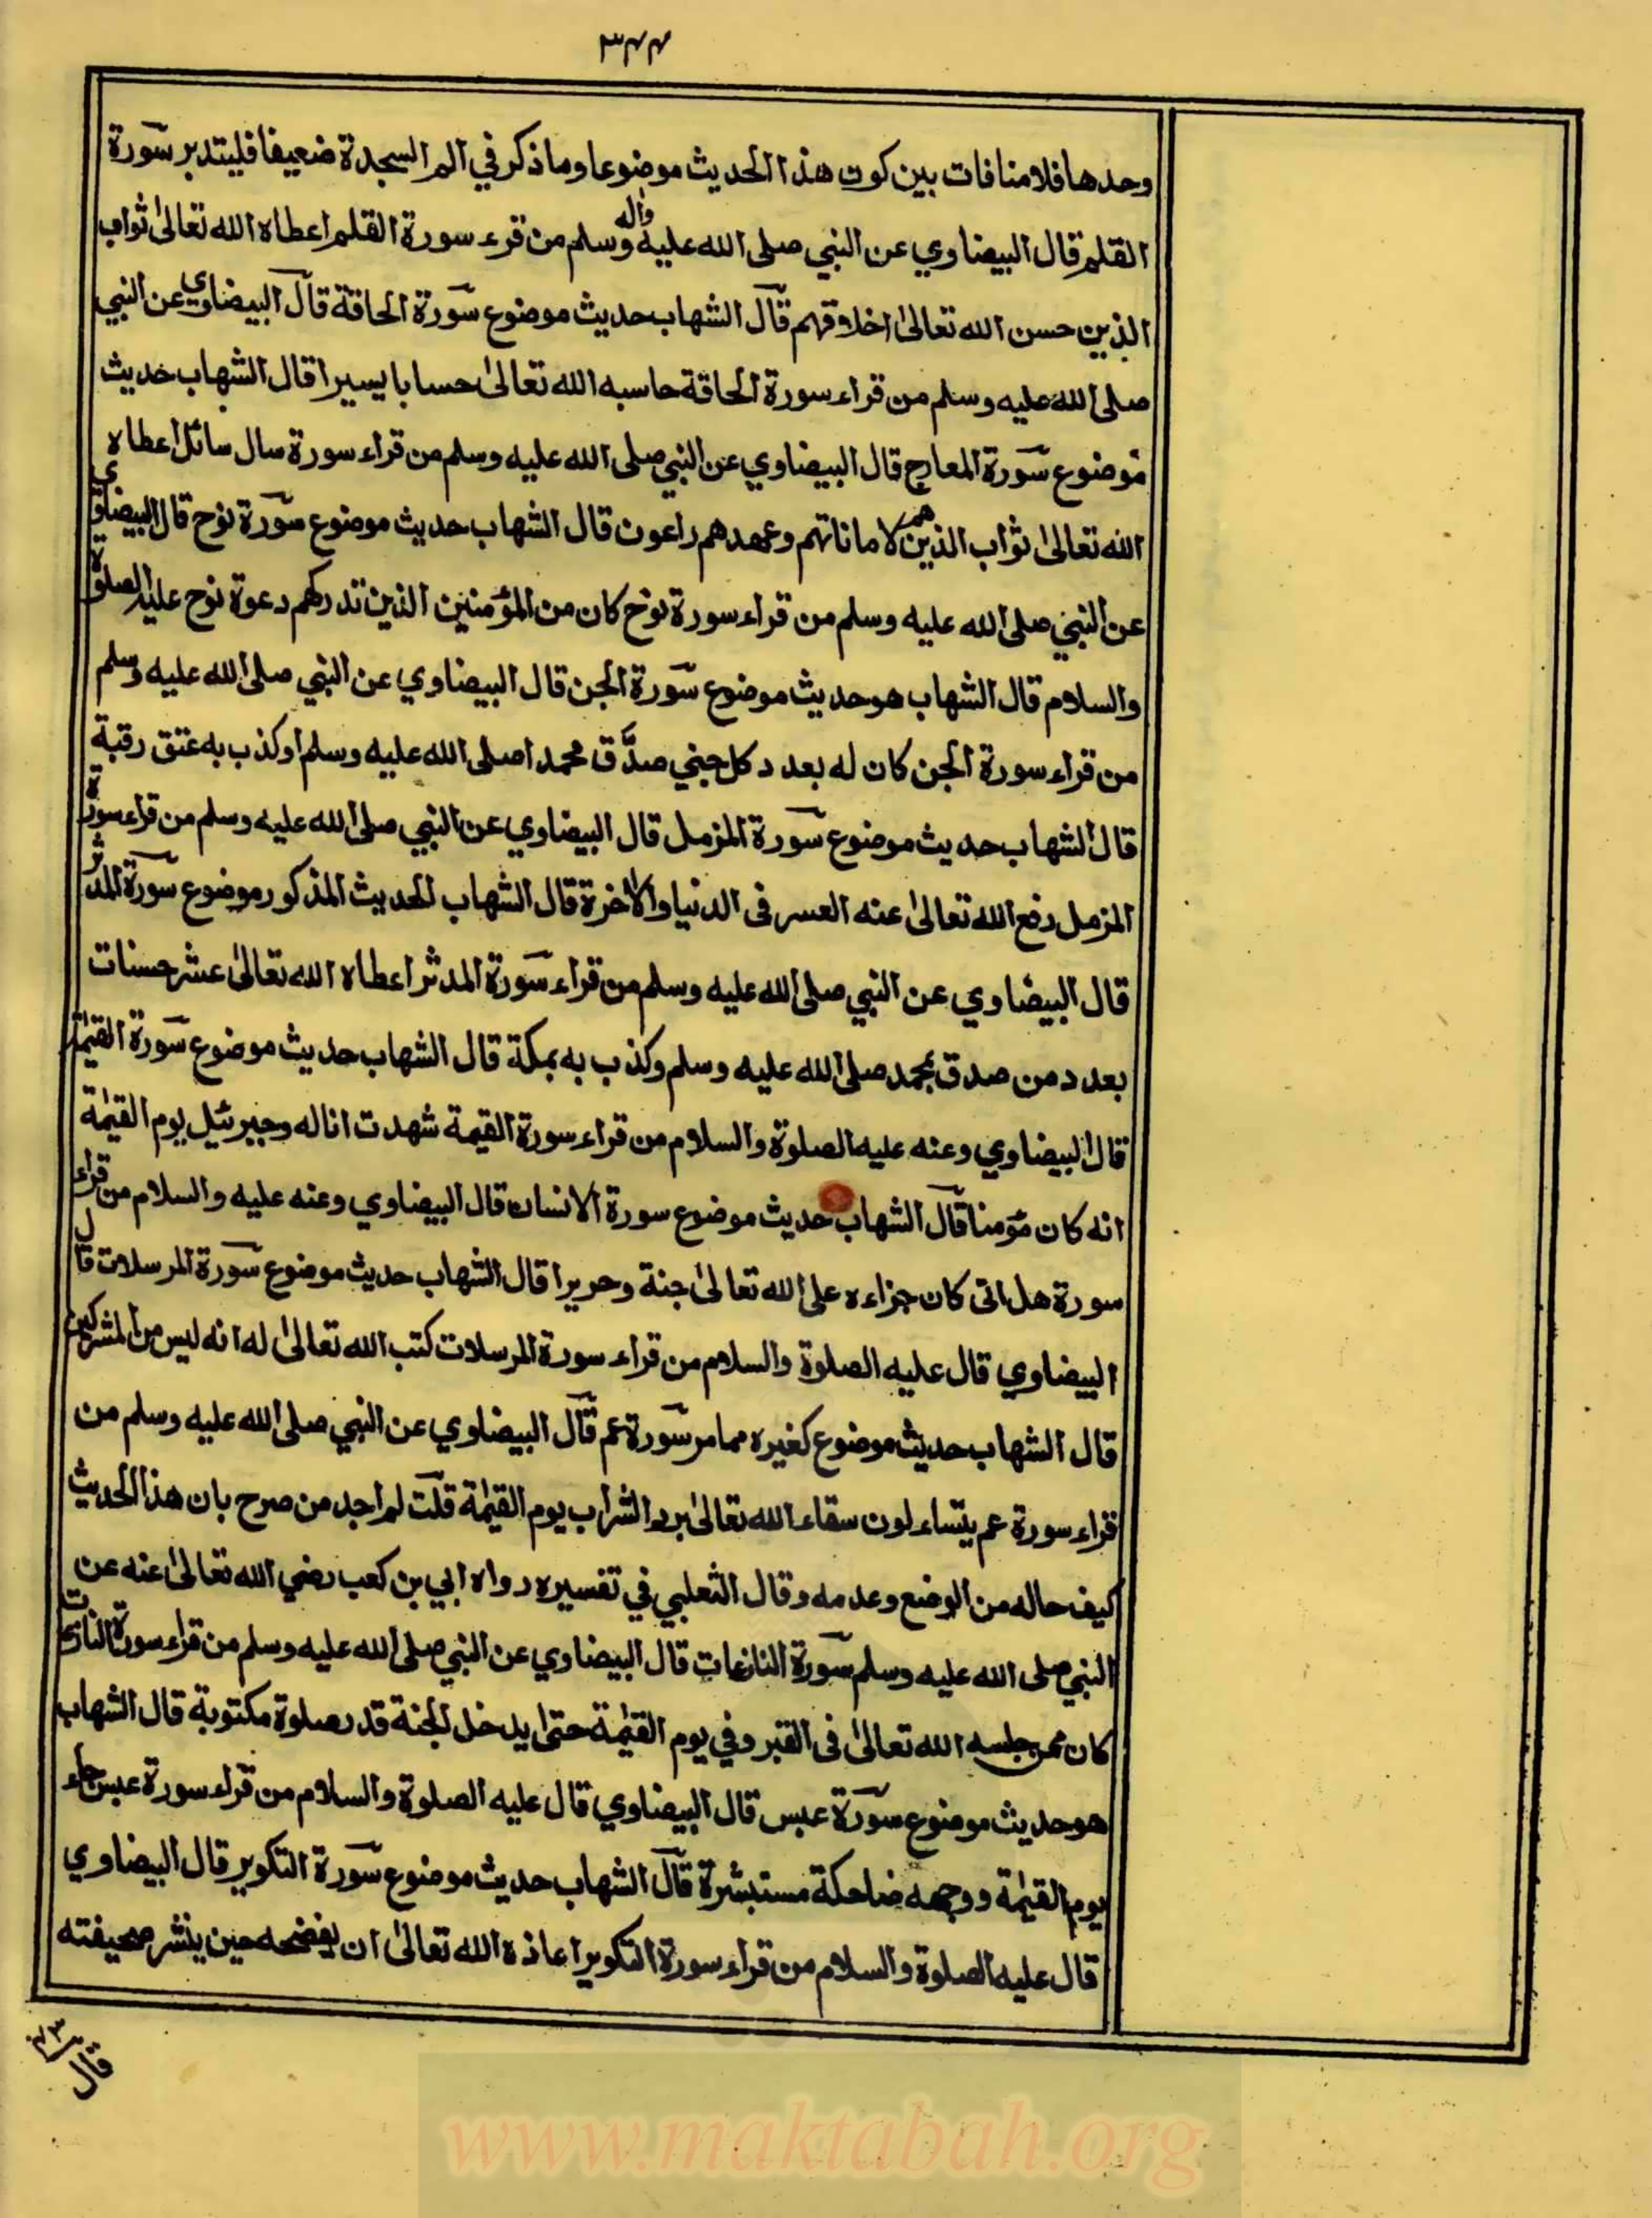 ٣٤٤
وحدها فلا منافات بين كون هذا الحديث موضوعا وما ذكر في الم السجدة ضعيفا فليتدبر سورة
القلم قال البيضاوي عن النبي صلى الله عليه واله وسلم من قرء سورة القلم اعطاه الله تعالىٰ ثواب
الذين حسن الله تعالىٰ اخلاقهم قال الشهاب حديث موضوع سورة الحاقة قال البيضاوي عن النبي
صلى الله عليه وسلم من قراء سورة الحاقة حاسبه الله تعالىٰ حسابا يسيرا قال الشهاب حديث
موضوع سورة المعارج قال البيضاوي عن النبي صلى الله عليه وسلم من قراء سورة سال سائل اعطاه
الله تعالىٰ ثواب الذين هم لاماناتهم وعهدهم راعون قال الشهاب حديث موضوع سورة نوح قال البيضاوي
عن النبي صلى الله عليه وسلم من قراء سورة نوح كان من المؤمنين الذين تدركهم دعوة نوح عليه الصلوة
والسلام قال الشهاب هو حديث موضوع سورة الجن قال البيضاوي عن النبي صلى الله عليه وسلم
من قراء سورة الجن كان له بعدد كل جني صدَّق محمدا صلى الله عليه وسلم او كذب به عتق رقبة
قال الشهاب حديث موضوع سورة المزمل قال البيضاوي عن النبي صلى الله عليه وسلم من قراء سورة
المزمل رفع الله تعالىٰ عنه العسر فى الدنيا والاخرة قال الشهاب الحديث المذكور موضوع سورة المدثر
قال البيضاوي عن النبي صلى الله عليه وسلم من قراء سورة المدثر اعطاه الله تعالىٰ عشر حسنات
بعدد من صدق بمحمد صلى الله عليه وسلم وكذب به بمكة قال الشهاب حديث موضوع سورة القيٰمة
قال البيضاوي وعنه عليه الصلوة والسلام من قراء سورة القيمة شهدت انا له وجبرئيل يوم القيٰمة
انه كان مؤمنا قال الشهاب حديث موضوع سورة الانسان قال البيضاوي وعنه عليه والسلام من قراء
سورة هل اتى كان جزاءه على الله تعالىٰ جنة وحريرا قال الشهاب حديث موضوع سورة المرسلات قال
البيضاوي قال عليه الصلوة والسلام من قراء سورة المرسلات كتب الله تعالىٰ له انه ليس من المشركين
قال الشهاب حديث موضوع كغيره مما مر سورة عم قال البيضاوي عن النبي صلى الله عليه وسلم من
قراء سورة عم يتساءلون سقاه الله تعالىٰ برد الشراب يوم القيٰمة قلت لم اجد من صرح بان هذا الحديث
كيف حاله من الوضع وعدمه وقال الثعلبي في تفسيره رواه ابي بن كعب رضي الله تعالىٰ عنه عن
النبي صلى الله عليه وسلم سورة النازعات قال البيضاوي عن النبي صلى الله عليه وسلم من قراء سورة النازعات
كان ممن حبسه الله تعالىٰ فى القبر وفي يوم القيٰمة حتىٰ يدخل الجنة قدر صلوة مكتوبة قال الشهاب
هو حديث موضوع سورة عبس قال البيضاوي قال عليه الصلوة والسلام من قراء سورة عبس جاء
يوم القيٰمة ووجهه ضاحكة مستبشرة قال الشهاب حديث موضوع سورة التكوير قال البيضاوي
قال عليه الصلوة والسلام من قراء سورة التكوير اعاذه الله تعالىٰ ان يفضحه حين ينشر صحيفته
قال
www.maktabah.org